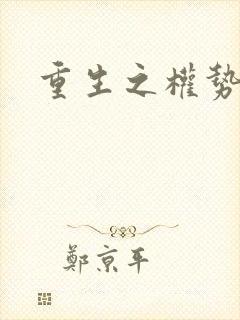 重生之權勢
鄭京平